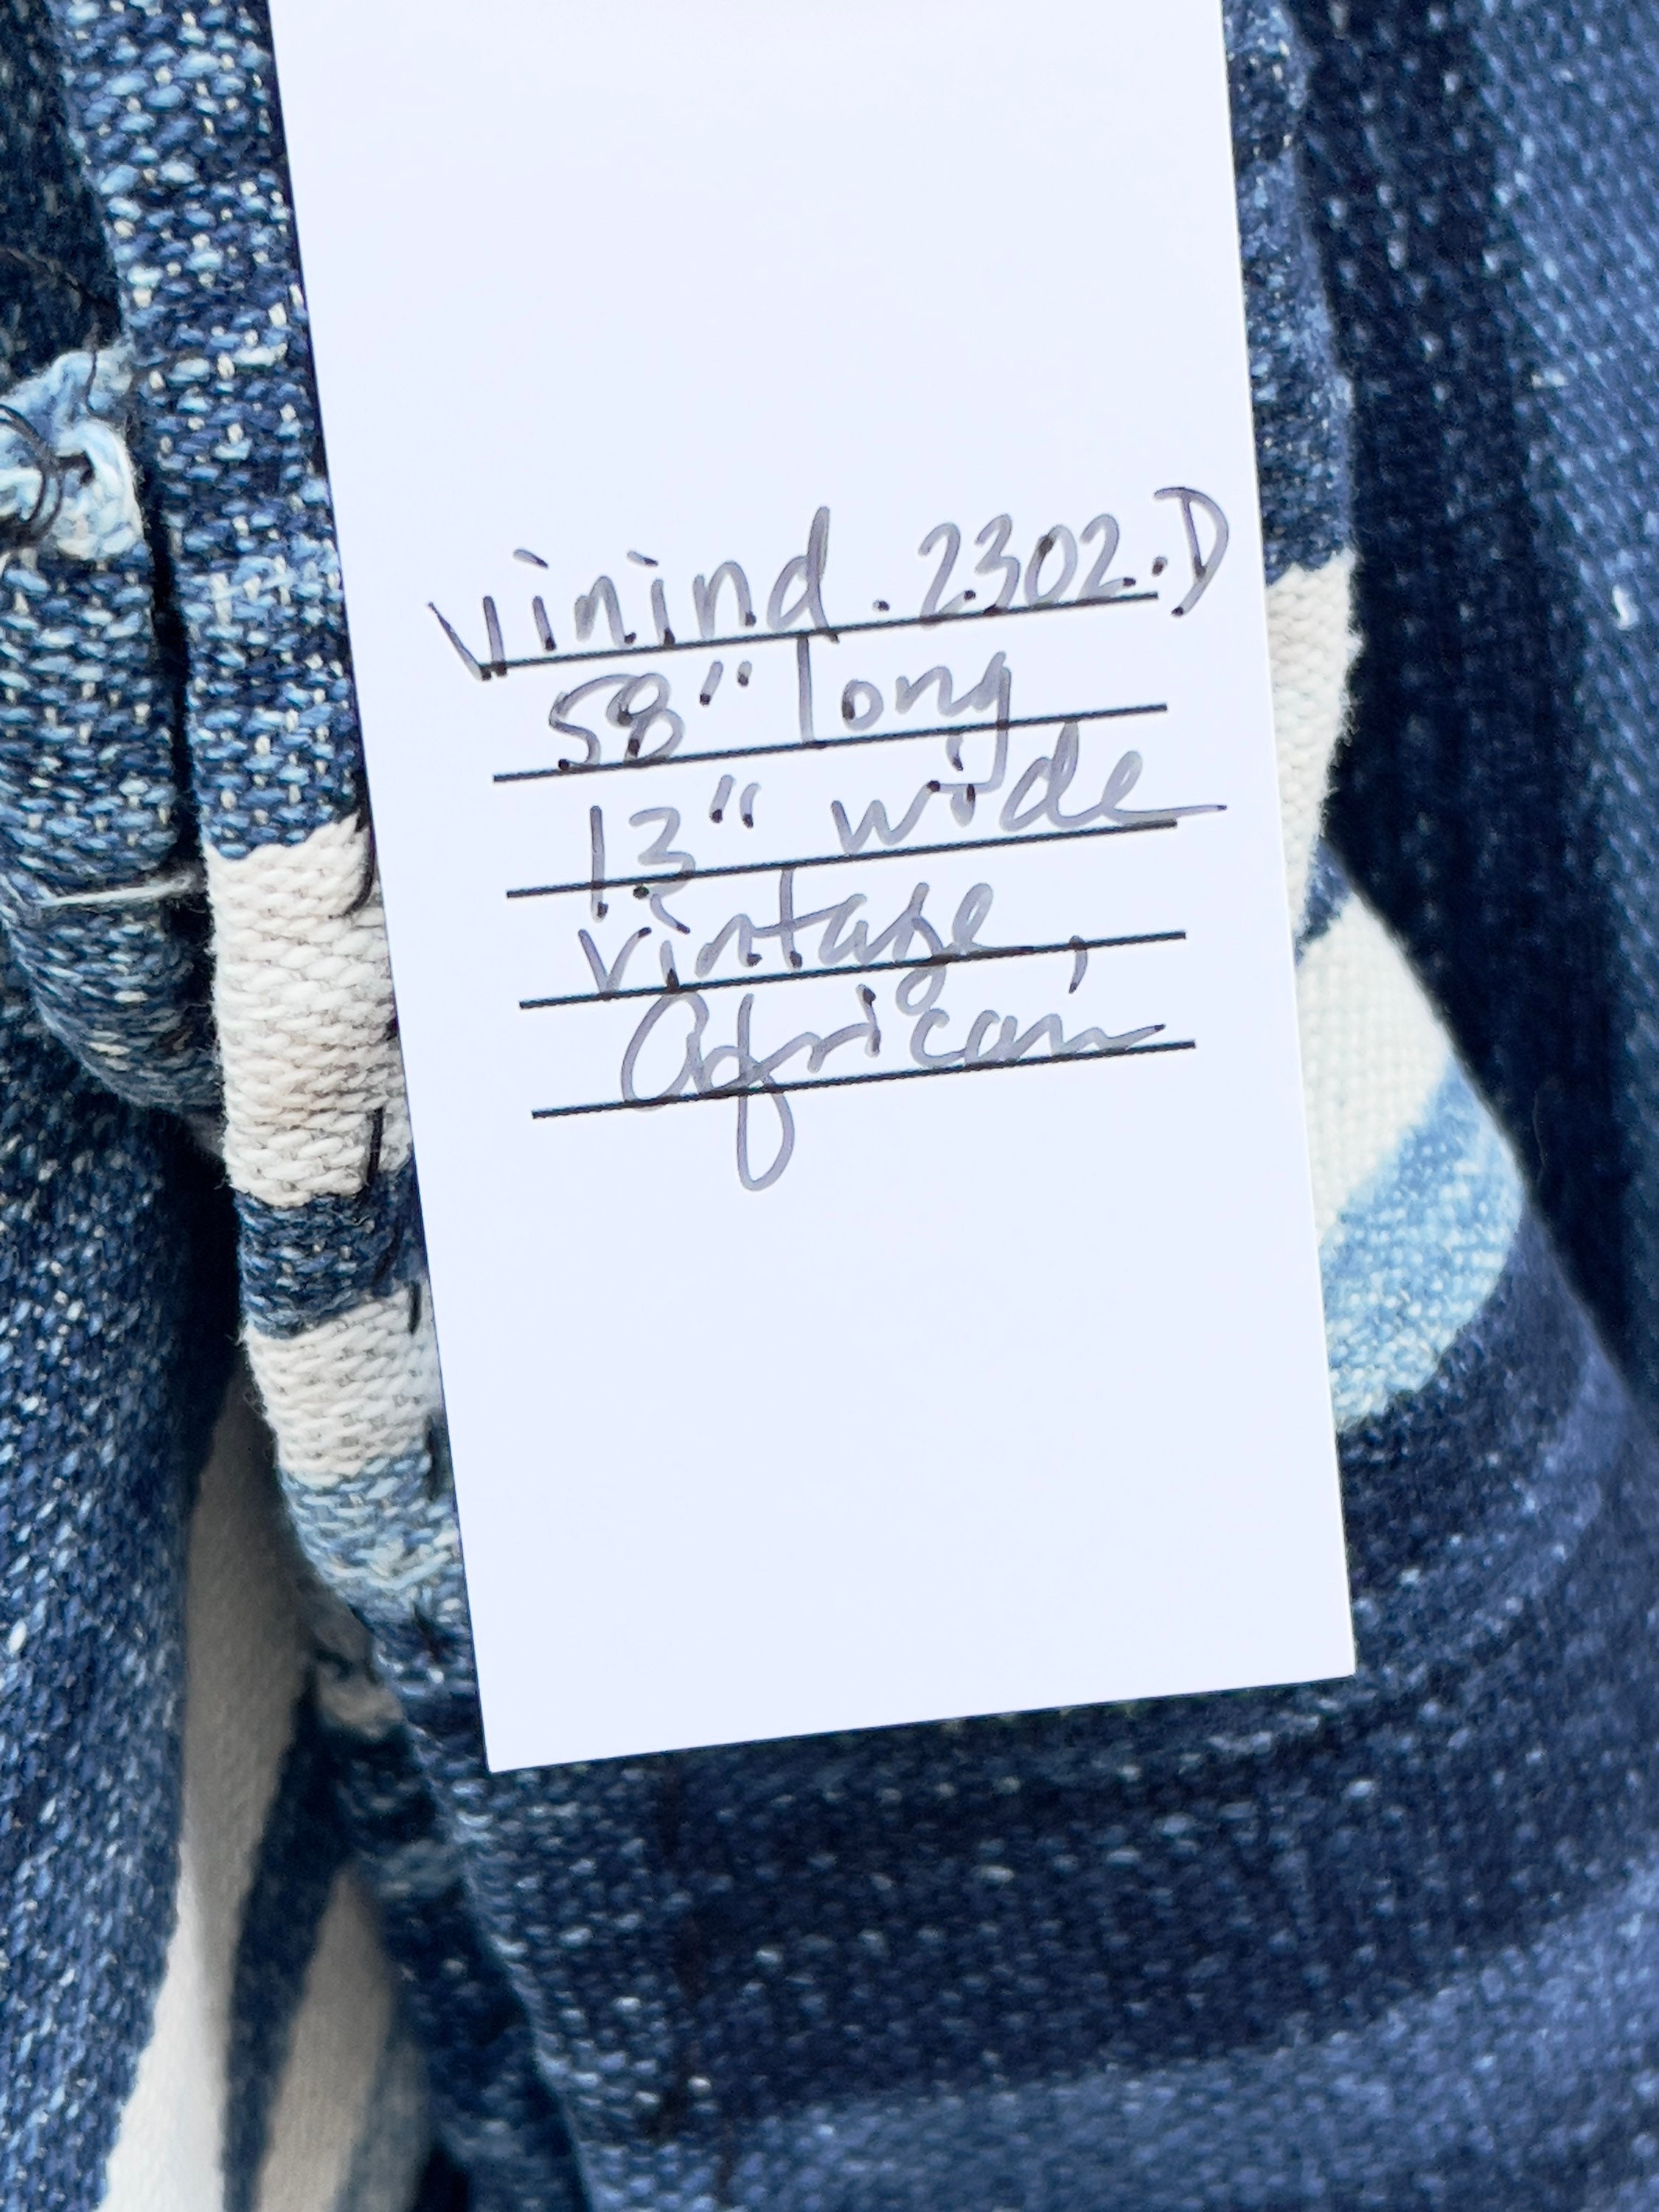 vinind.2302.D
58" long
13" wide
vintage,
African